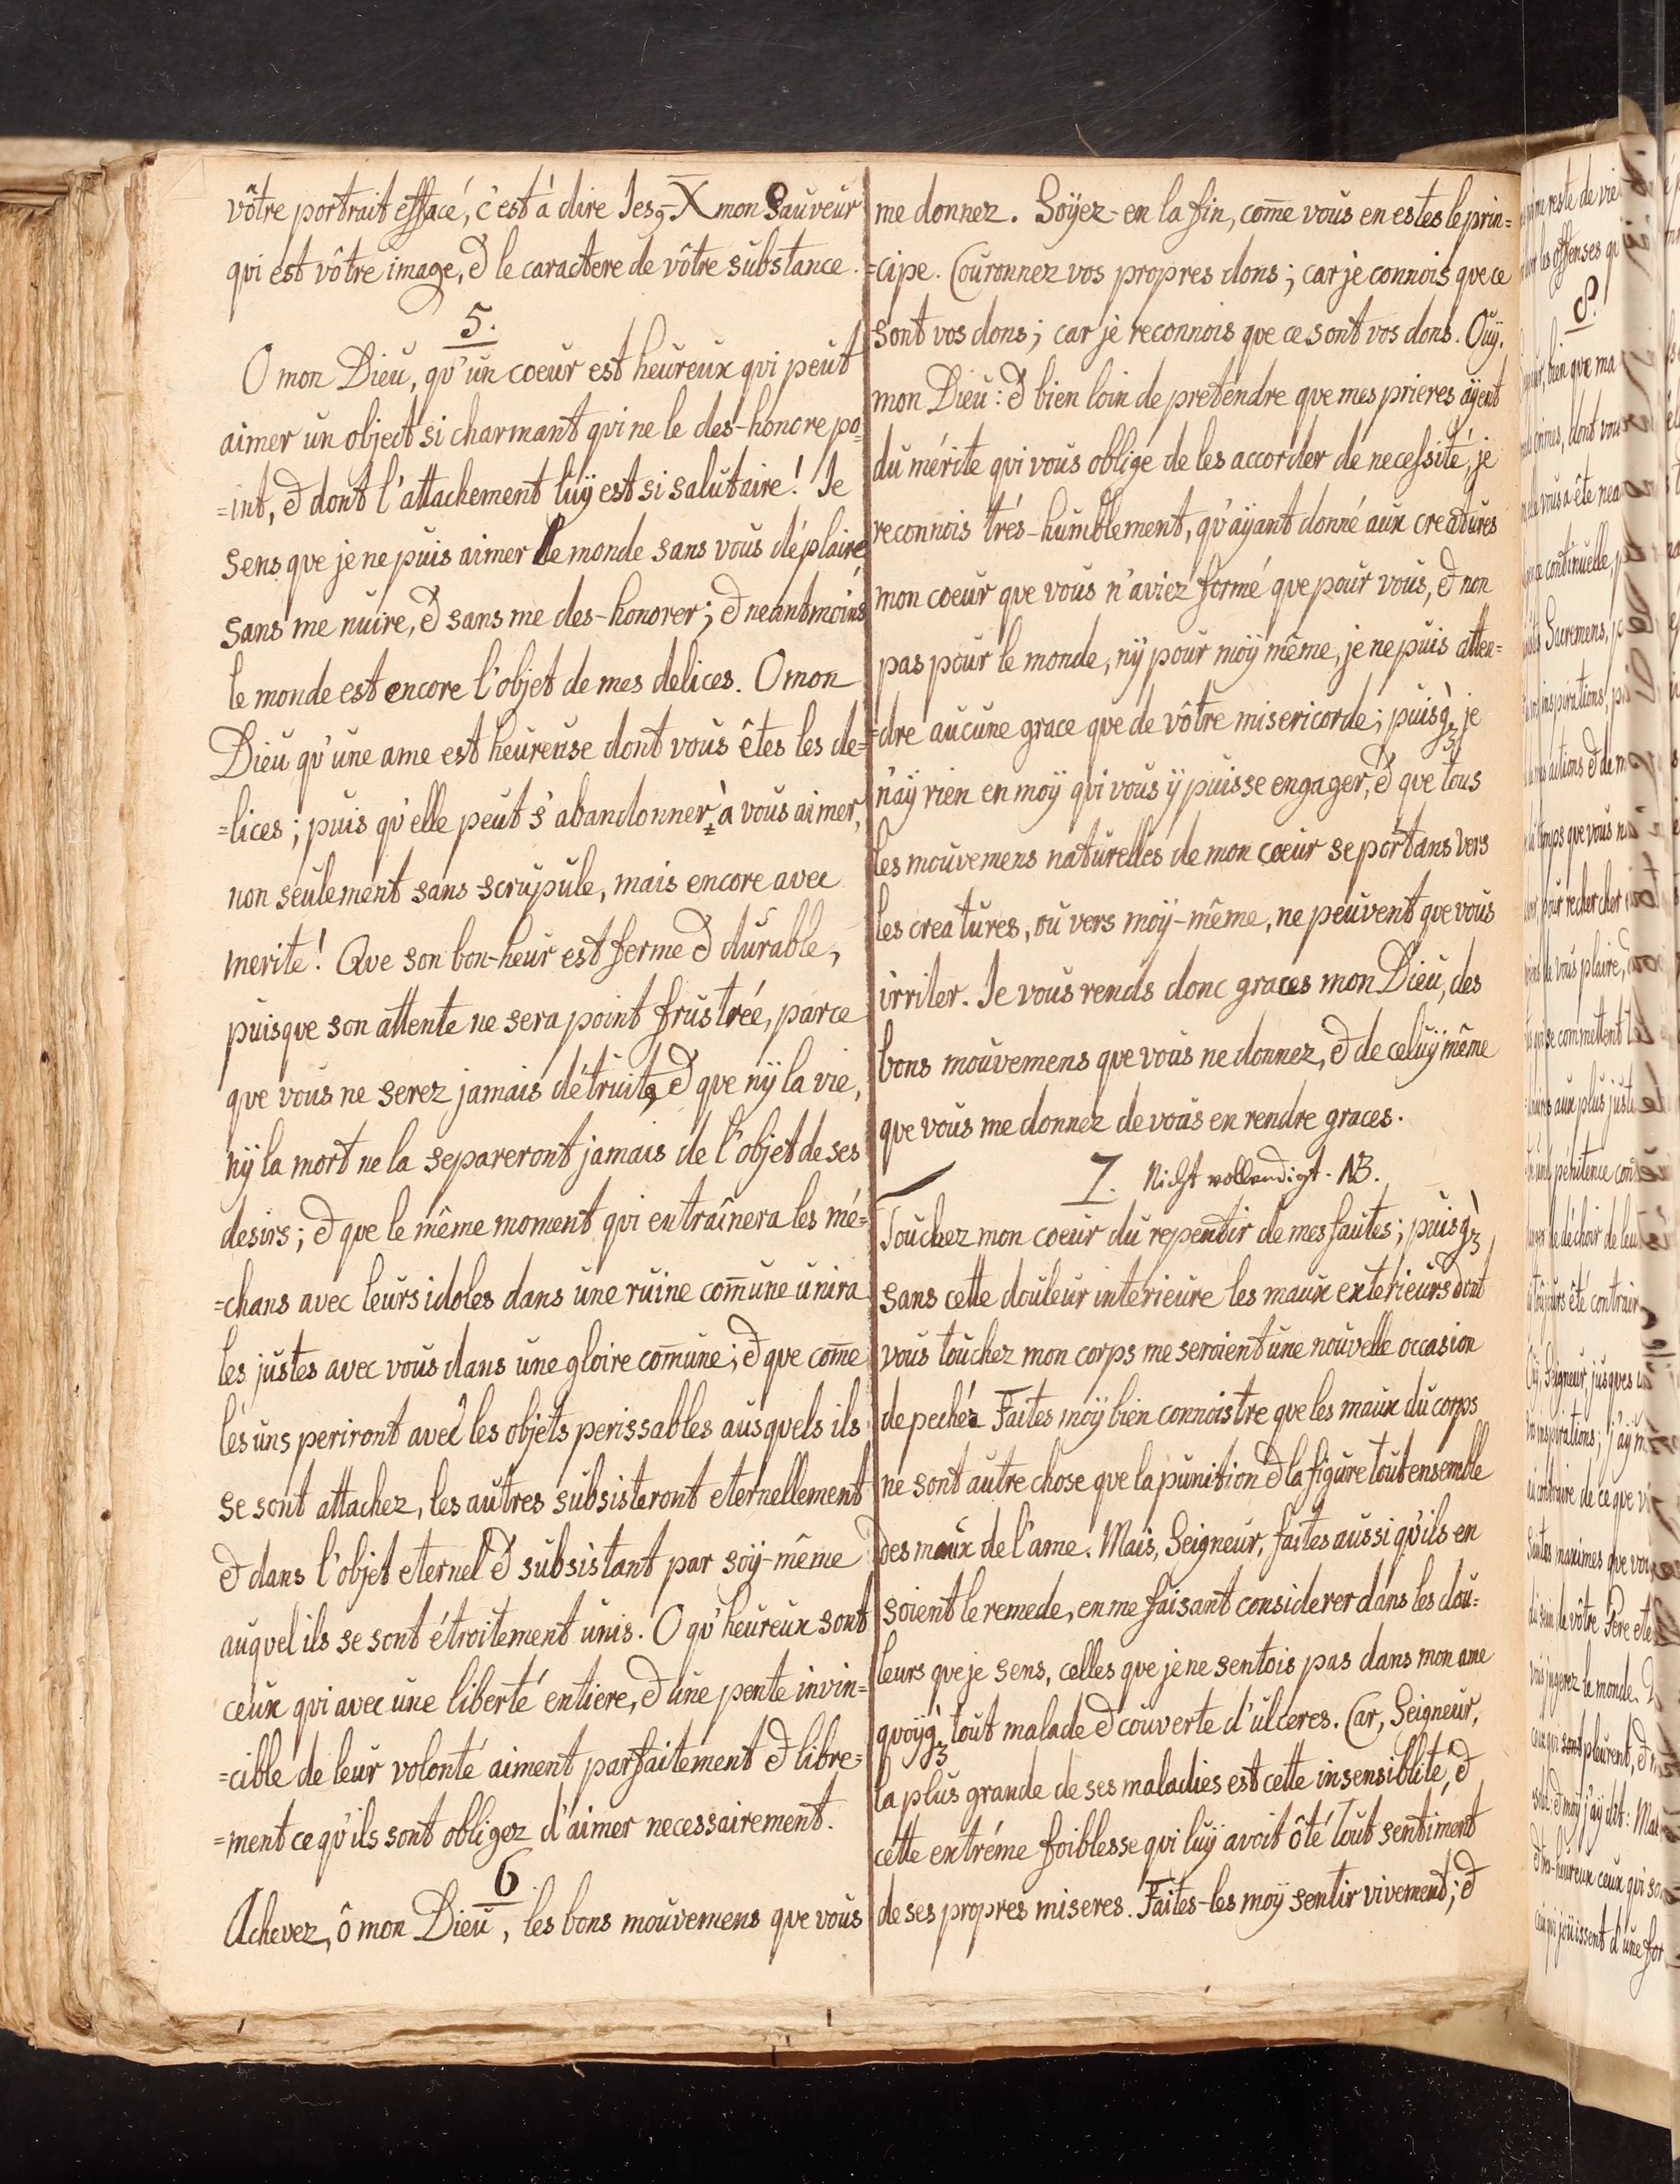 vôtre portrait effacé, c'est à dire Jes9-X mon Sauveur
qui est vôtre image, & le caractere de vôtre substance.
5.
O mon Dieu, qu'un coeur est heureux qui peut
aimer un object si charmant qui ne le des-honore po=
=int, & dont l'attachement luÿ est si salutaire! Je
sens que je ne puis aimer le monde sans vous déplaire
sans me nuire, & sans me des-honorer; & neantmoins
le monde est encore l'objet de mes delices. O mon
Dieu qu'une ame est heureuse dont vous êtes les de=
=lices; puis qu'elle peut s'abandonner à vous aimer,
non seulement sans scrupule, mais encore avec
merite! Que son bon-heur est ferme & durable,
puisque son attente ne sera point frustrée, parce
que vous ne serez jamais détruit, & que nÿ la vie,
nÿ la mort ne la separeront jamais de l'objet de ses
desirs; & que le même moment qui entraînera les mé=
=chans avec leurs idoles dans une ruine com̄une unira
les justes avec vous dans une gloire com̄une; & que com̄e
les uns periront avec les objets perissables ausquels ils
se sont attachez, les autres subsisteront eternellement
& dans l'objet eternel & subsistant par soÿ-même
auquel ils se sont étroitement unis. O qu'heureux sont
ceux qui avec une liberté entiere, & une pente invin=
=cible de leur volonté aiment parfaitement & libre=
=ment ce qu'ils sont obligez d'aimer necessairement.
6
Achevez, ô mon Dieu, les bons mouvemens que vous
me donnez. Soÿez-en la fin, com̄e vous en estes le prin=
=cipe. Couronnez vos propres dons; car je connois que ce
sont vos dons; car je reconnois que ce sont vos dons. Ouÿ,
mon Dieu: & bien loin de pretendre que mes prieres aÿent
du mérite qui vous oblige de les accorder de necessité, je
reconnois trés-humblement, qu'aÿant donné aux creatures
mon coeur que vous n'aviez formé que pour vous, & non
pas pour le monde, nÿ pour moÿ même, je ne puis atten=
=dre aucune grace que de vôtre misericorde; puisq̀3 je
n'aÿ rien en moÿ qui vous ÿ puisse engager, & que tous
les mouvemens naturelles de mon coeur se portans vers
les creatures, ou vers moÿ-même, ne peuvent que vous
irriter. Je vous rends donc graces mon Dieu, des
bons mouvemens que vous ne donnez, & de celuÿ même
que vous me donnez de vous en rendre graces.
7. Nicht vollendigt. NB.
Touchez mon coeur du repentir de mes fautes; puisq̀3
sans cette douleur interieure les maux exterieurs dont
vous touchez mon corps me seroient une nouvelle occasion
de peché. Faites moÿ bien connoistre que les maux du corps
ne sont autre chose que la punition & la figure tout ensemble
des maux de l'ame. Mais, Seigneur, faites aussi qu'ils en
soient le remede, en me faisant considerer dans les dou=
leurs que je sens, celles que je ne sentois pas dans mon ame
quoÿq̀3 tout malade & couverte d'ulceres. Car, Seigneur,
la plus grande de ses maladies est cette insensiblité, &
cette extréme foiblesse qui luÿ avoit ôté tout sentiment
de ses propres miseres. Faites-les moÿ sentir vivement; &
reste de vie
les offenses qu
8.
bien que ma
crimes, dont vou
vous a été
continuelle,
Sacremens,
inspirations,
actions & de m
temps que vous
pour rechercher
de vous plaire,
se commettent
aux plus juste
penitence
déchoir de leu
été contrair
Seigneur, jusques
inspirations; j'aÿ m
de ce que v
maximes que vou
de vôtre Pere ete
jugerez le monde.
pleurent, &
& moÿ j'aÿ dit: Mal
heureux ceux qui so
joüissent d'une for